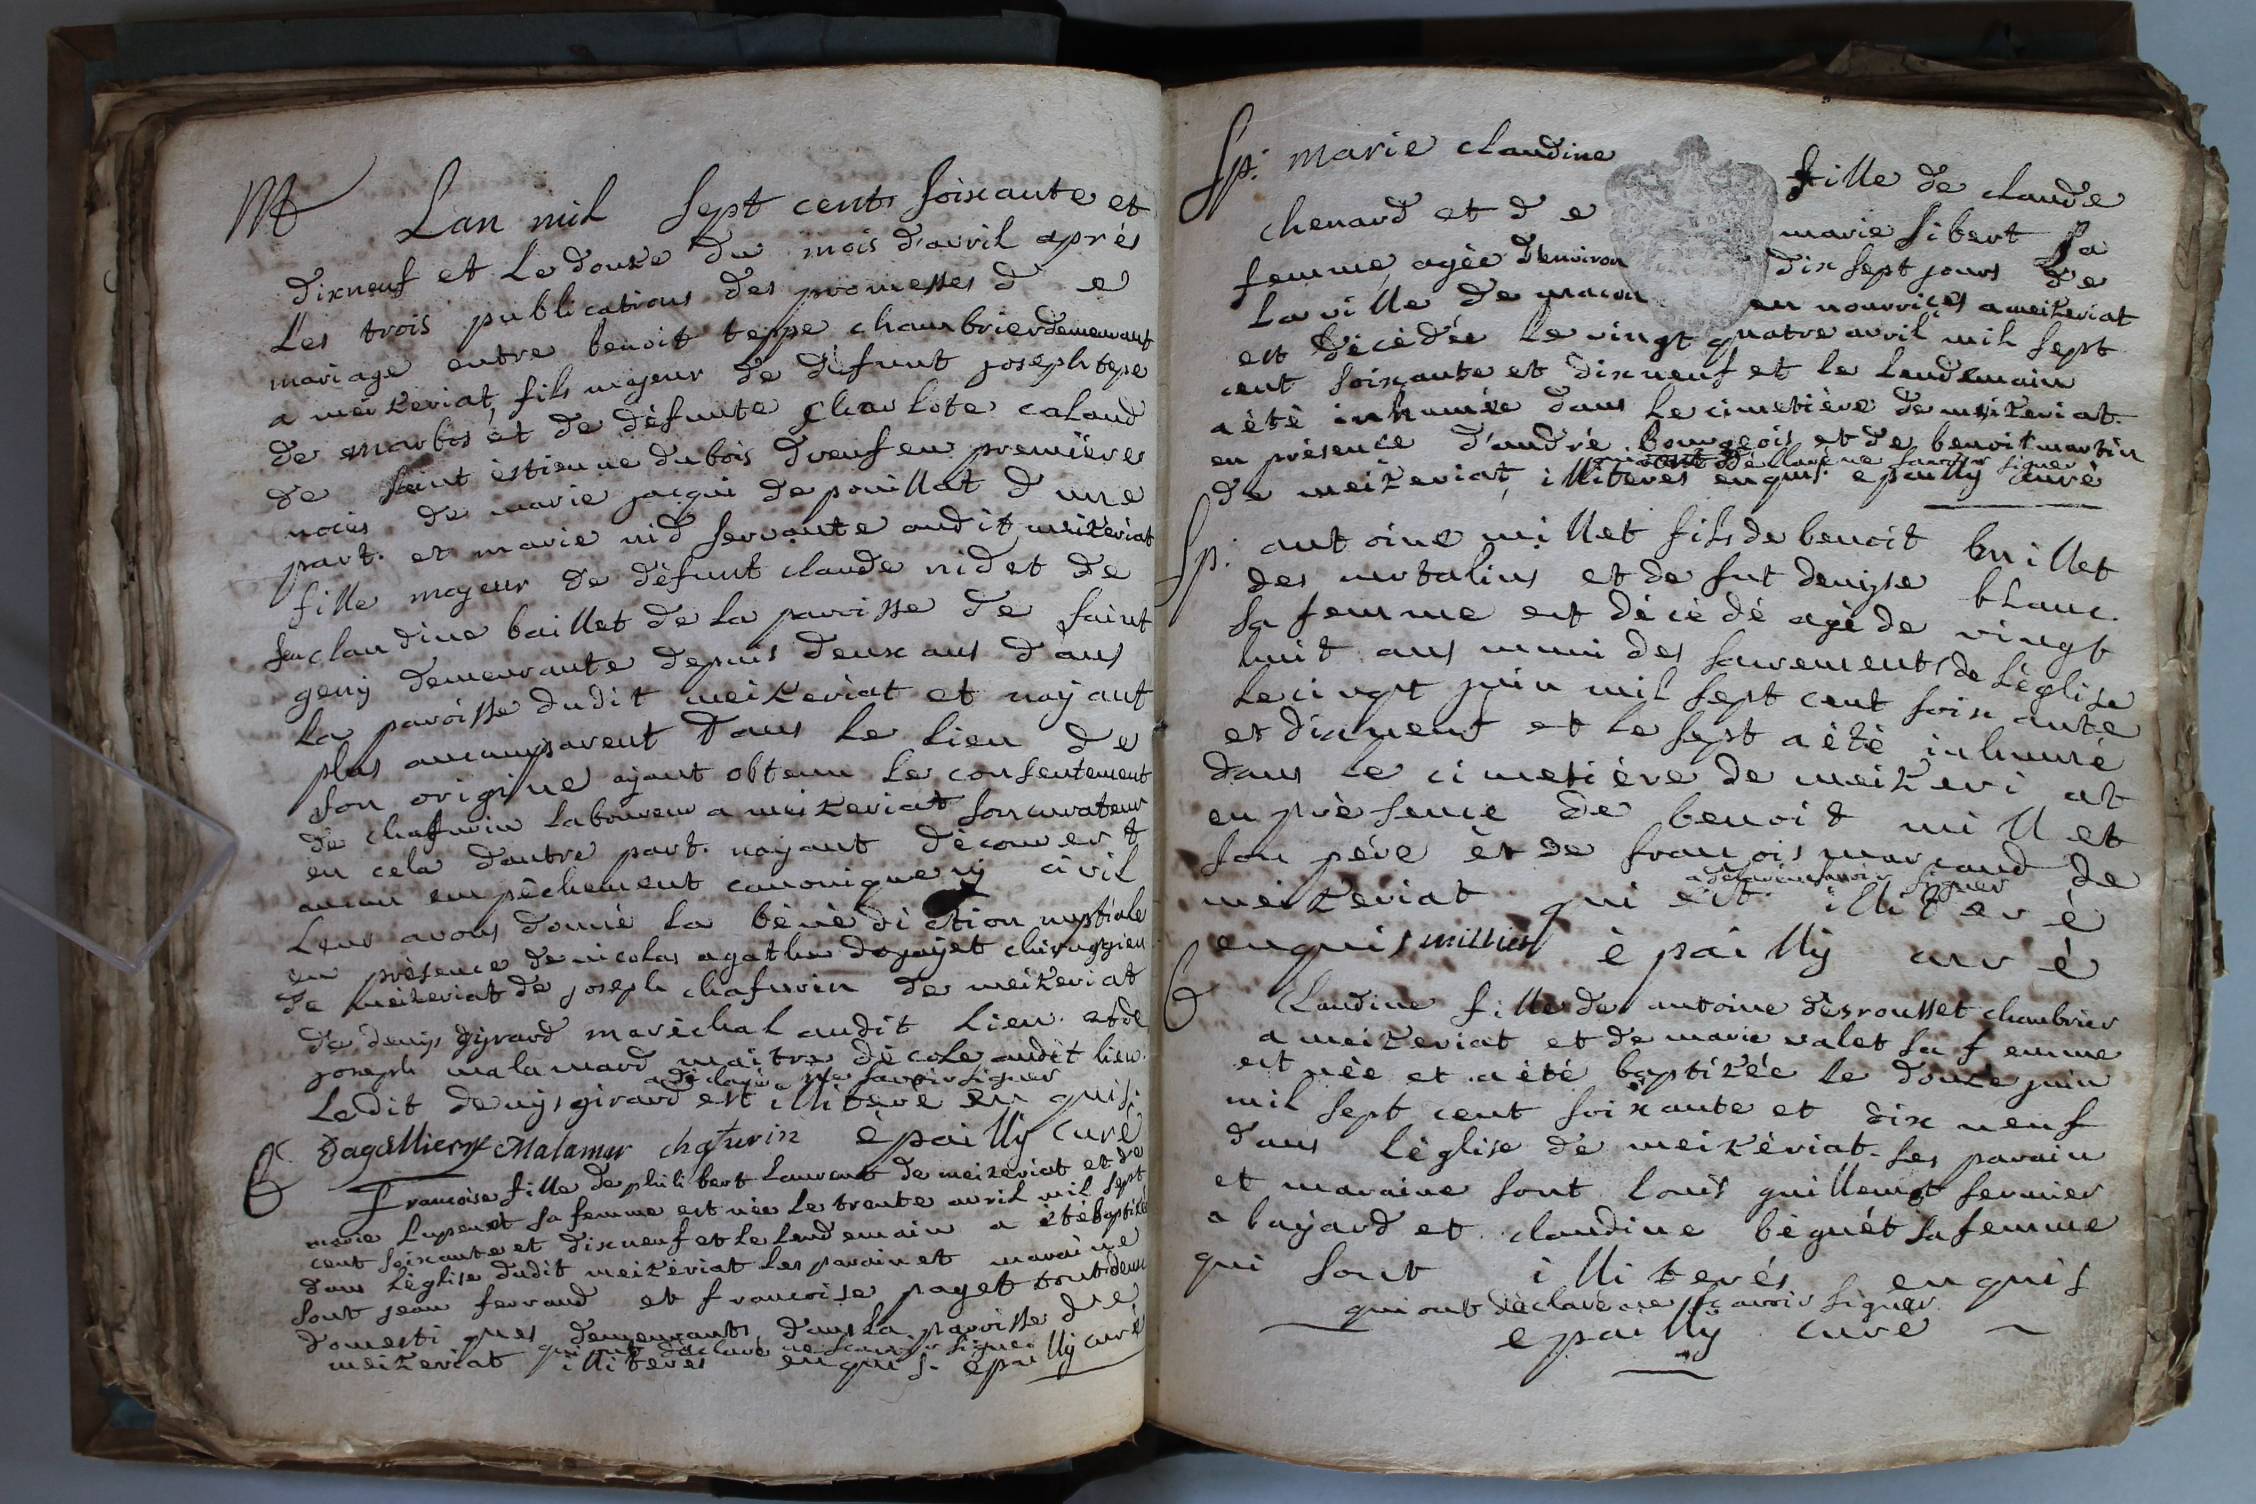 M Lan mil sept cents soixante et
dixneuf et le douze du mois d'avril après
les trois publications des promesses d e
mariage entre benoit teppe chambrier demeurant
a meizeriat, fils majeur de défunt joseph tepe
de marbos et de défunte charlote caland
de saint èstienne dubois dreuf en premières
noces de marie jacqui de pouillat d une
part. et marie nid servante audit meizériat
fille majeur de défunt claude nid et de
feu claudine baillet de la paroisse de saint
geny demeurante depuis deux ans dans
la paroisse dudit meizeriat et nayant
plus aucun parent dans le lieu de
son origine ayant obtenu le consentement
de chafurin laboureur a meizeriat son curateur
en cela dautre part. nayant découvert
aucun empêchement canonique ny civil
leur avons donné la bénédiction nuptiale
en présence de nicolas agathe dogayet chirurgien
de meizeriat de joseph chafurin de meizeriat
de denys gyrard maréchal audit lieu et de
joseph malamard maître décole audit lieu.
a déclaré ne savoir signer
Ledit denys girard est illiteré en quis.
Malamar chafurin épailly curé
B françoise fille de philibert laurent de meizeriat et de
marie lupenet sa femme est née le trente avril mil sept
cent soixante et dixneuf et le lendemain a été baptizée
dans léglise dudit meizériat les parain et maraine
sont jean ferrand et francoise payet tout deux
domestiques demeurants dans la paroisse de
qui ont déclaré ne savoir signer
meizeriat illiterés enquis. epailly curé
Sp. marie claudine fille de claude
chenard et d e marie sibert sa
femme, agée denviron dix sept jours de
la ville de macon en nourrices a meizeriat
est décédée le vingt quatre avril mil sept
cent soixante et dixneuf et le lendemain
a été inhumée dans le cimetière de meizeriat.
en présence d'andré bourgeois et de benoit martin
ont déclaré ne savoir signer
de meizeriat, illiterés enquis. epailly curé
Sp. antoine millet fils de benoit millet
des mortalins et de fut denyse blanc.
sa femme est décédé agé de vingt
huit ans muni des sacrements de léglise
le cinqt juin mil sept cent soixante
et dixneuf et le sept a été inhumé
dans le cimetière de meizeri at
en présence de benoit mill et
son père et de francois marcaud de
a déclaré ne savoir signer
meizeriat qui est illit er é
enquis millier épailly curé
B claudine fille de antoine désrousset chambrier
a meizeriat et de marie valet sa femme
est née et a été baptizée le douze juin
mil sept cent soixante et dix neuf
dans léglise de meizériat. les parain
et maraine sont louis guillemot fermier
a bayard et claudine béguét sa femme
qui sont illiterés enquis
qui ont déclaré ne scavoir signer
epailly curé